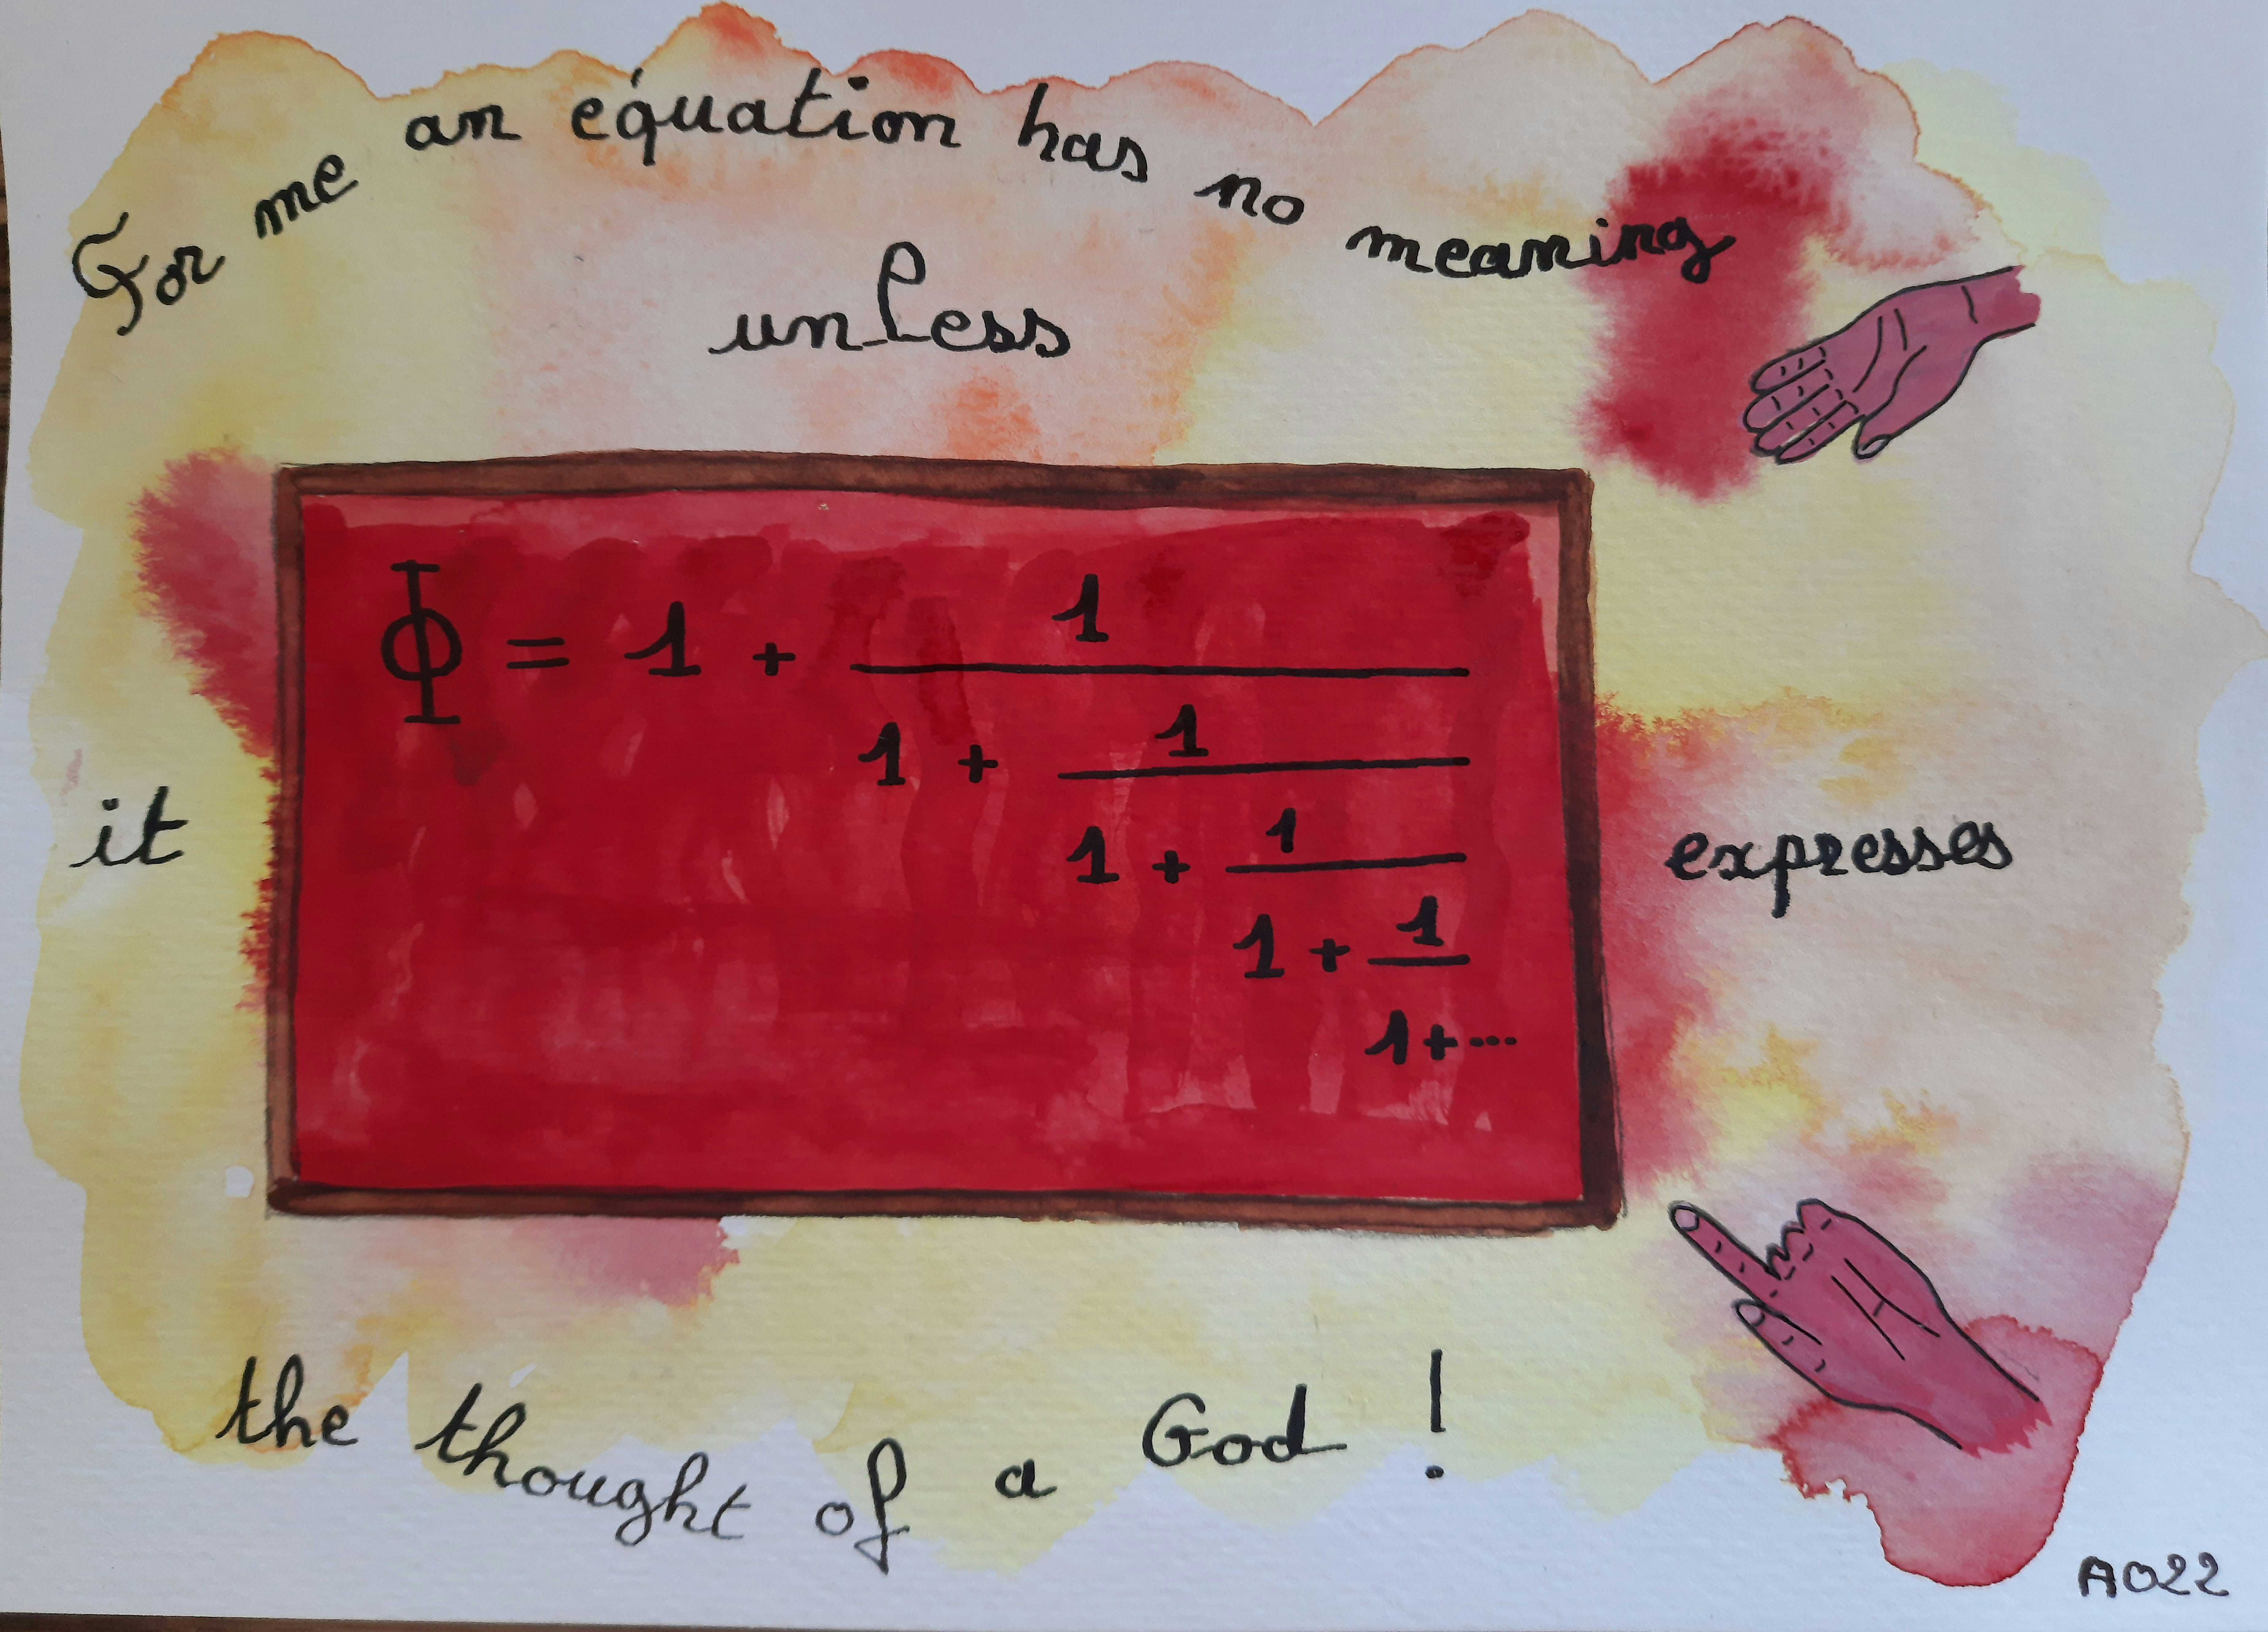 For me an équation has no meaning
unless
Φ = 1 + 1
1 + 1
1 + 1
1 + 1
1+...
it expresses
the thought of a God !
AO22